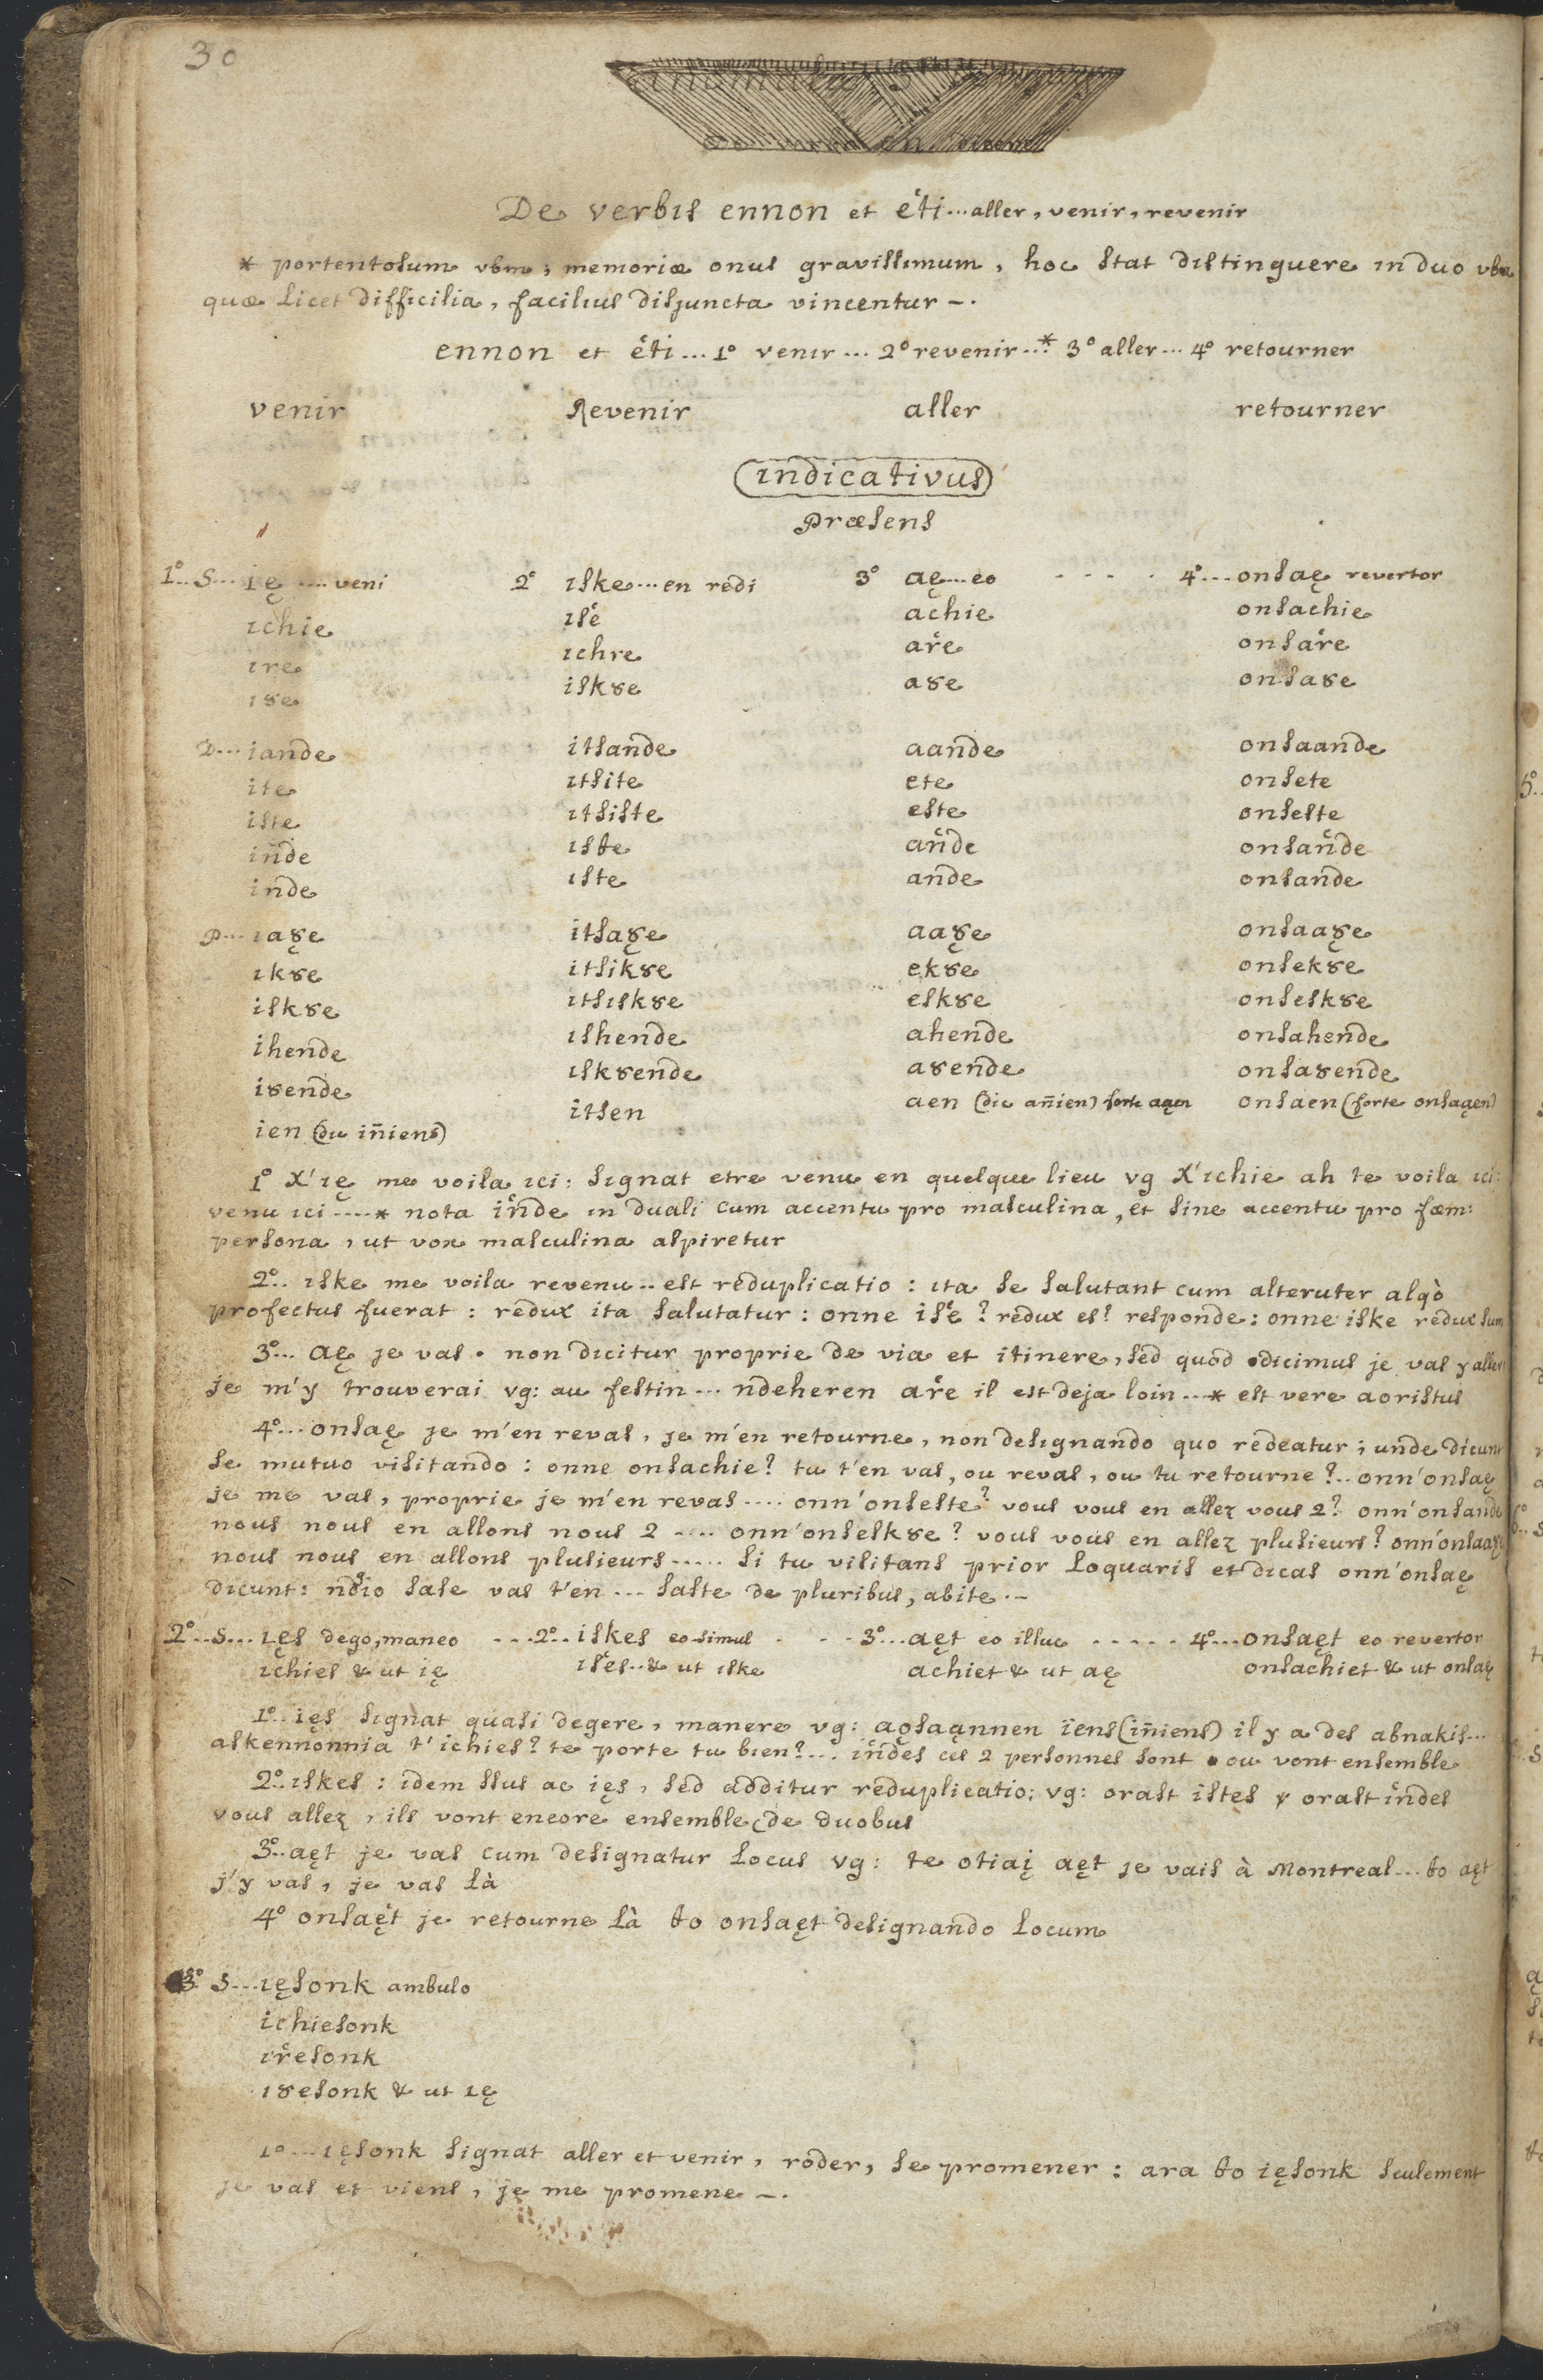 30
De verbis ennon et ěti...aller, venir, revenir
* portentosum vbm ; memoriæ onus gravissimum, hoc stat distinguere in duo vba
quæ licet difficilia, facilius disjuncta vincentur -.
ennon et ěti ... 1° venir ... 2° revenir ...* 3° aller ... 4° retourner
venir Revenir aller retourner
indicativus
Præsens
1°.. S... ię .... veni 2° iske...en redi 3° aę...eo - - - - 4°...onsaę revertor
ichie isě achie onsachie
ire ichre aře onsaře
i8e isk8e a8e onsa8e
D... iande itsande aande onsaande
ite itsite ete onsete
iste itsiste este onseste
iňde isťe aňde onsaňde
inde iste ande onsande
P... ia8̨e itsa8̨e aa8̨e onsaa8̨e
ik8e itsik8e ek8e onsek8e
isk8e itsisk8e esk8e onsesk8e
ihende ishende ahende onsahende
i8ende isk8ende a8ende onsa8ende
ien (du iñiens) itsen aen (dic añien) forte aąen onsaen (forte onsaąen)
1° x'ię me voila ici: signat etre venu en quelque lieu vg x'ichie ah te voila ici:
venu ici ....* nota iňde in duali cum accentu pro masculina, et sine accentu pro fœm:
persona, ut vox masculina aspiretur
2°.. iske me voila revenu .. est reduplicatio : ita se salutant cum alteruter alqò
profectus fuerat : redux ita salutatur : onne isě ? redux es? responde : onne iske redux sum
3°... aę je vas . non dicitur proprie de via et itinere, sed quod dicimus je vas y aller
je m'y trouverai vg: au festin ... ndeheren aře il est deja loin ...* est vere aoristus
4°... onsaę je m'en revas, je m'en retourne, non designando quo redeatur ; unde dicunt
se mutuo visitando : onne onsachie? tu t'en vas, ou revas, ou tu retourne?.. onn'onsaę
je me vas, proprie je m'en revas .... onn'onseste? vous vous en allez vous 2? onn'onsande
nous nous en allons nous 2 .... onn'onsesk8e? vous vous en allez plusieurs? onn'onsaa8̨e
nous nous en allons plusieurs ..... si tu visitans prior loquaris et dicas onn'onsaę
dicunt: ndio sase vas t'en ... saste de pluribus, abite .-
2°..S... ięs dego, maneo - - - 2°.. iskes eo simul - - - 3°... aęt eo illuc - - - - - 4°... onsaęt eo revertor
ichies & ut ię isěs..& ut iske achiet & ut aę onsachiet & ut onsaę
1°.. ięs signat quasi degere, manere vg: aǫsaąnnen iens (iñiens) il y a des abnakis...
askennonnia t'ichies? te porte tu bien? ... iňdes ces 2 personnes sont ou vont ensemble
2°. iskes : idem ssus ac ięs, sed additur reduplicatio; vg: orast istes & orast iňdes
vous allez, ils vont encore ensemble, de duobus
3°.. aęt je vas cum designatur locus vg: te otiaį aęt je vais à Montreal ... ťo aęt
j'y vas, je vas là
4° onsaęt je retourne là ťo onsaęt designando locum
3° S... ięsonk ambulo
ichiesonk
iřesonk
i8esonk & ut ię
1° ... ięsonk signat aller et venir, roder, se promener : ara ťo ięsonk seulement
je vas et viens, je me promene -.